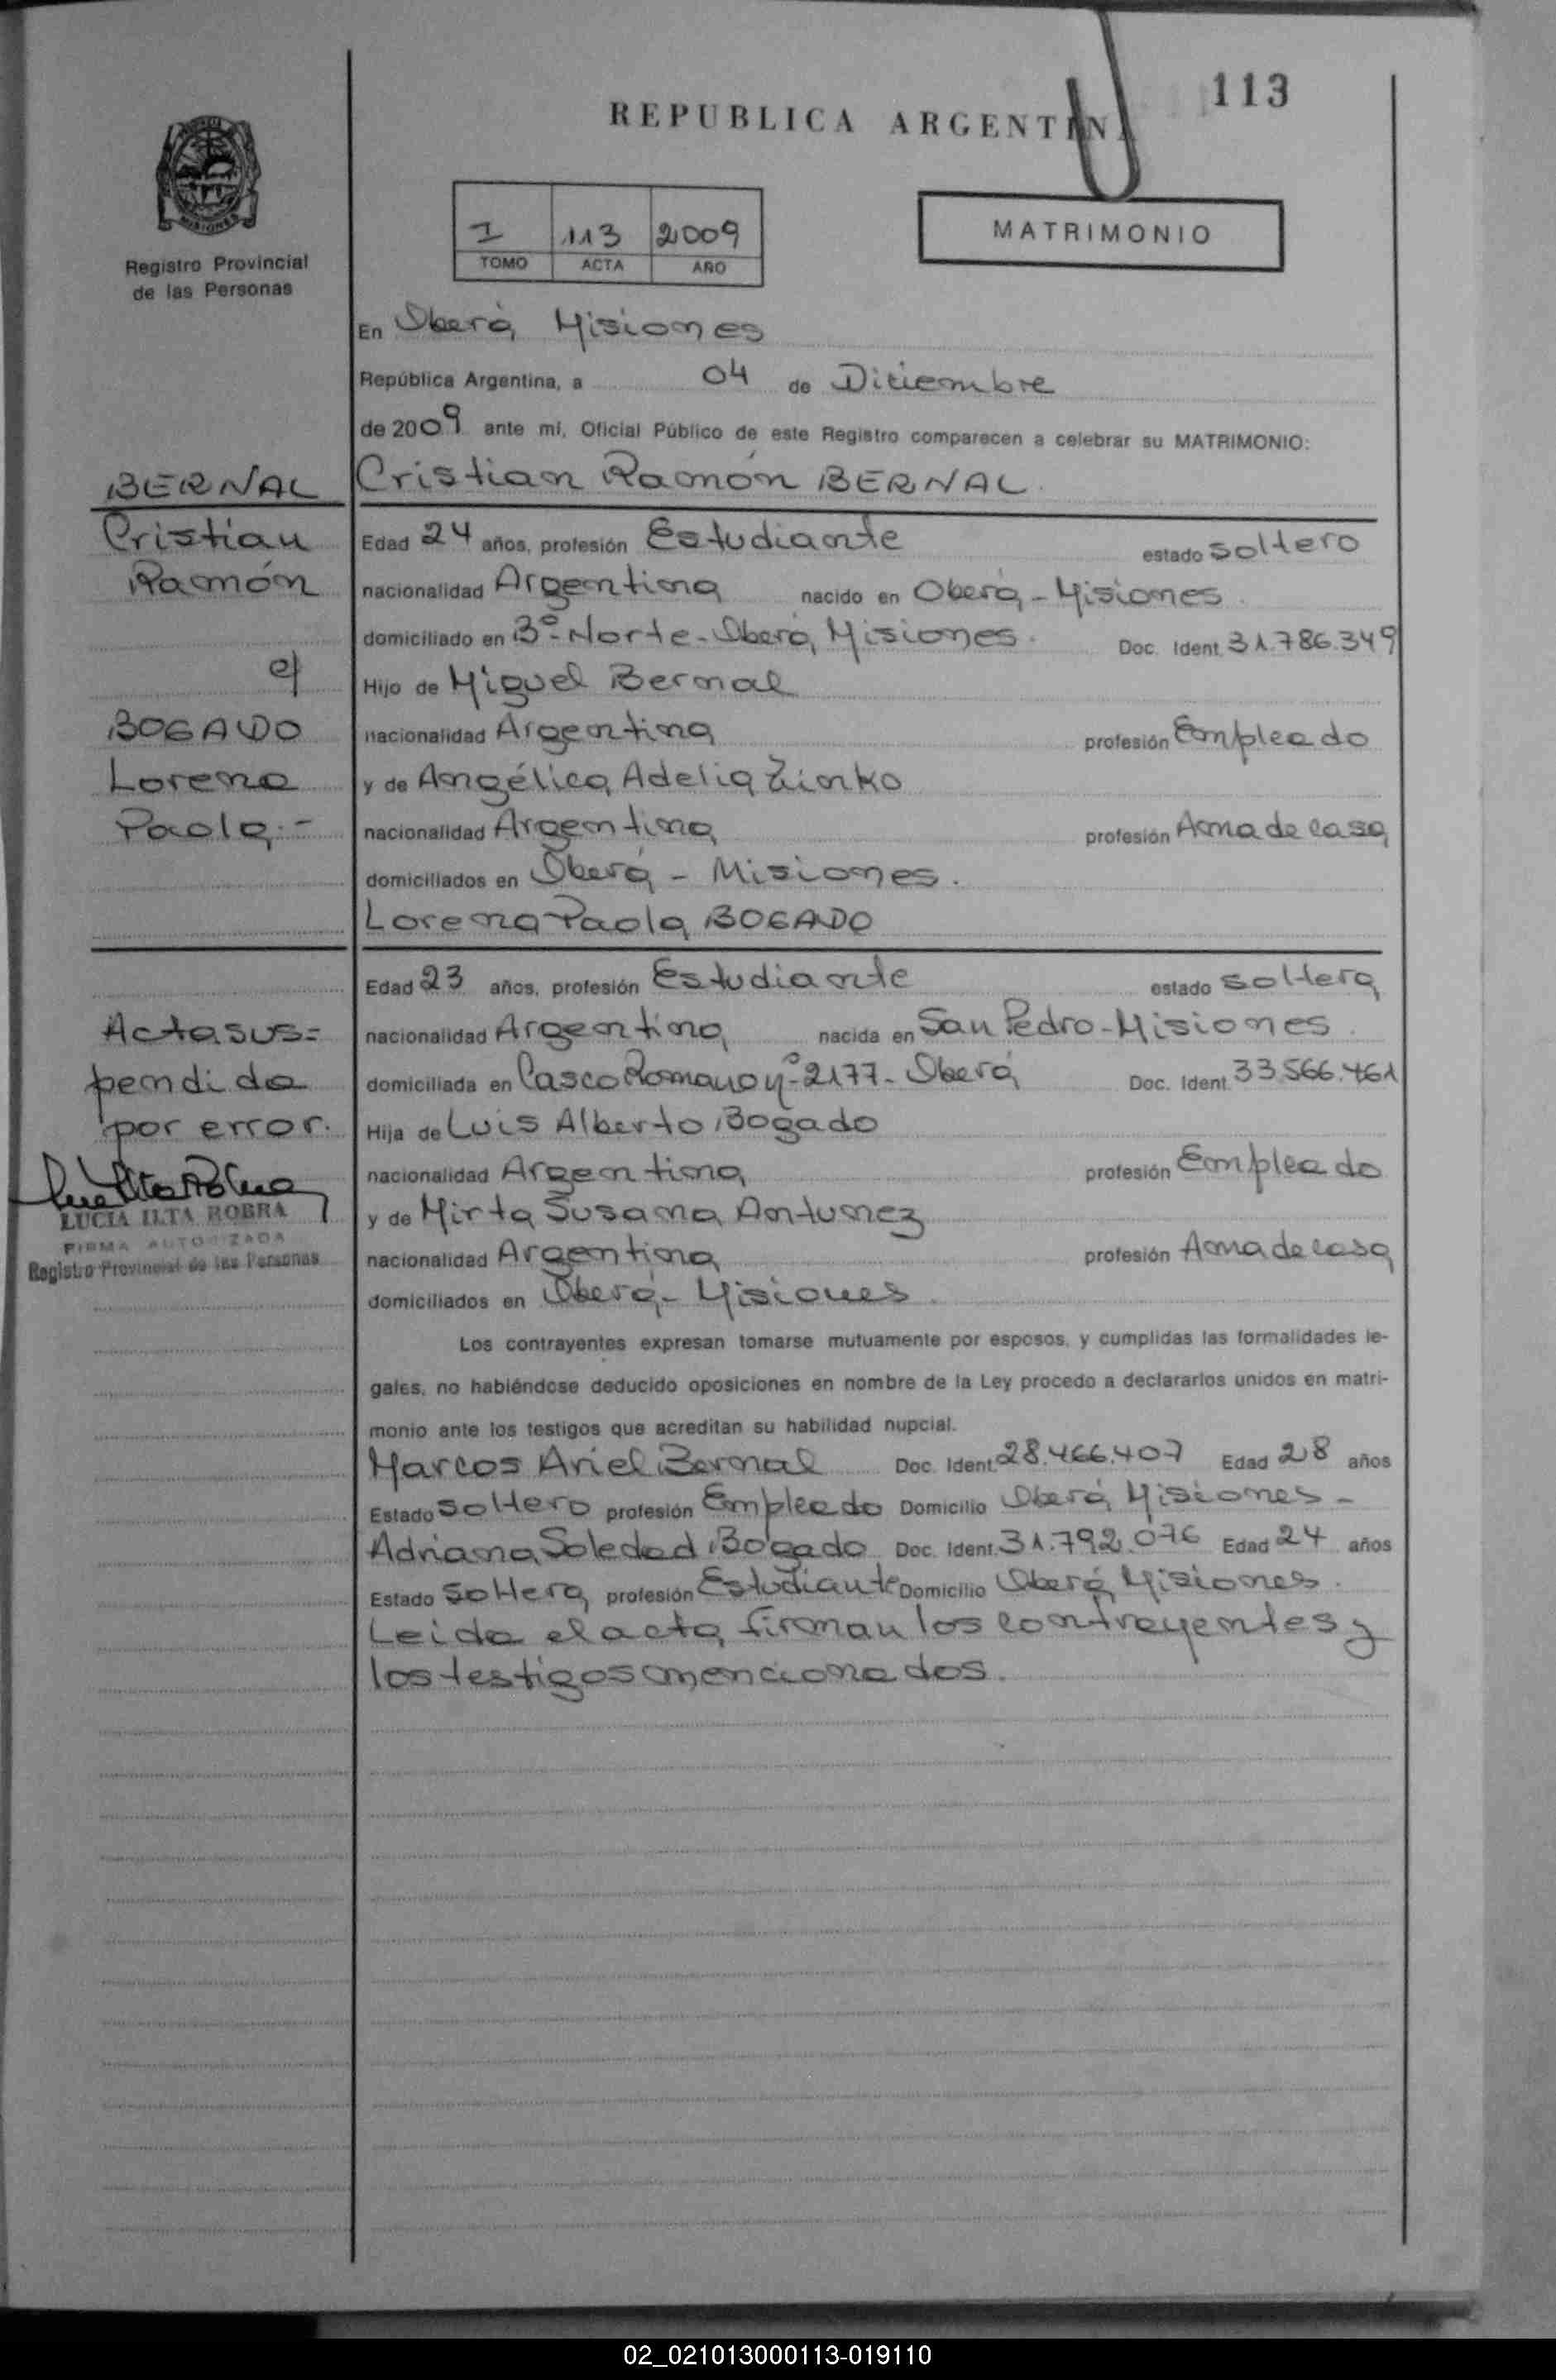 113
REPUBLICA ARGENTINA
MATRIMONIO
I 113 2009
TOMO ACTA AÑO
MISIONES
Registro Provincial
de las Personas
En Oberá, Misiones
República Argentina, a 04 de Diciembre
de 2009 ante mí, Oficial Público de este Registro comparecen a celebrar su MATRIMONIO:
BERNAL
Cristian
Ramón
c/
BOGADO
Lorena
Paola.-
Cristian Ramón BERNAL
Edad 24 años, profesión Estudiante estado soltero
nacionalidad Argentina nacido en Oberá - Misiones.
domiciliado en Bº- Norte - Oberá, Misiones. Doc. Ident. 31.786.349
Hijo de Miguel Bernal
nacionalidad Argentina profesión Empleado
y de Angélica Adelia Zinko
nacionalidad Argentina profesión Ama de casa
domiciliados en Oberá - Misiones.
Lorena Paola BOGADO
Edad 23 años, profesión Estudiante estado soltera
nacionalidad Argentina nacida en San Pedro - Misiones.
domiciliada en Casco Romano nº- 2177- Oberá Doc. Ident. 33.566.461
Hija de Luis Alberto Bogado
nacionalidad Argentina profesión Empleado
y de Mirta Susana Antunez
nacionalidad Argentina profesión Ama de casa
domiciliados en Oberá - Misiones.
Acta sus=
pendida
por error.
LUCIA ILTA ROBRA
FIRMA AUTORIZADA
Registro Provincial de las Personas
Los contrayentes expresan tomarse mutuamente por esposos, y cumplidas las formalidades le-
gales, no habiéndose deducido oposiciones en nombre de la Ley procedo a declararlos unidos en matri-
monio ante los testigos que acreditan su habilidad nupcial.
Marcos Ariel Bernal Doc. Ident. 28.466.407 Edad 28 años
Estado soltero profesión Empleado Domicilio Oberá, Misiones -
Adriana Soledad Bogado Doc. Ident. 31.792.076 Edad 24 años
Estado soltera profesión Estudiante Domicilio Oberá, Misiones.
Leida el acta, firman los contrayentes y
los testigos mencionados.
02_021013000113-019110